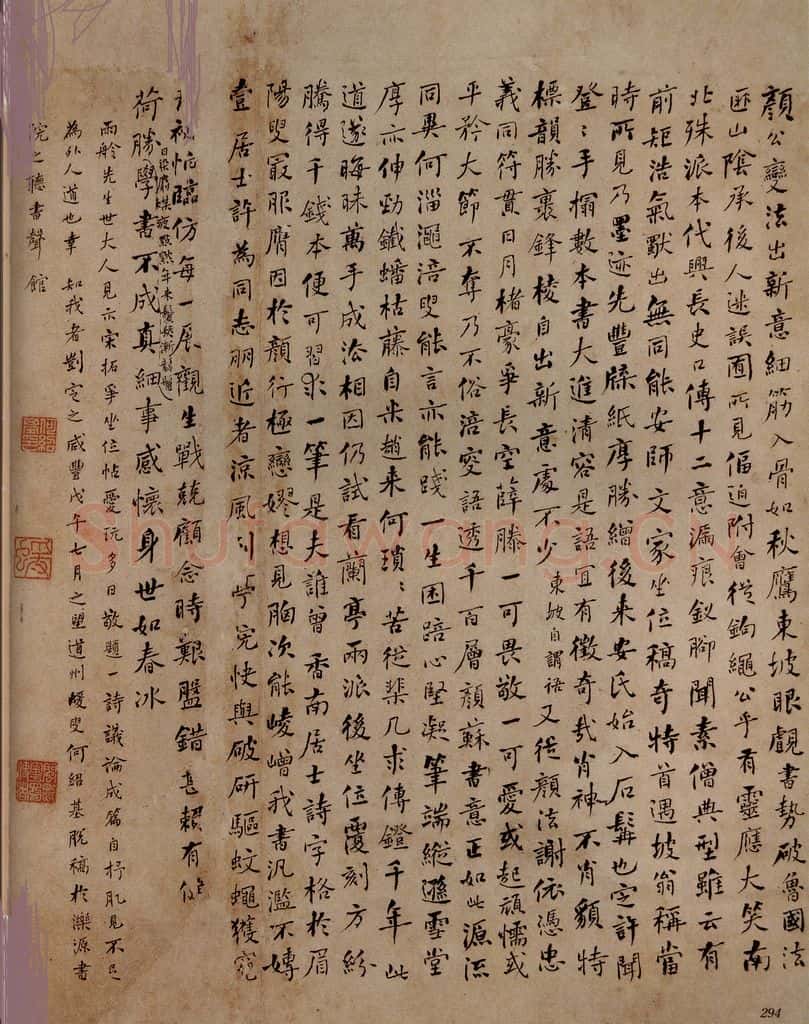 顏公變法出新意細筋入骨如秋鷹東坡眼覷書勢破魯國法
匯山陰承後人迷誤囿所見偪迫附會從鉤繩公乎有靈應大笑南
北殊派本代興長史口傳十二意漏痕釵腳聞素僧典型雖云有
前矩浩氣獸出無同能安師文家坐位稿奇特首遇坡翁稱當
時所見乃墨迹先豐牒紙厚勝繒後来安氏始入石髯也定許聞
登〻手搨數本書大進清容是語宜有徵奇哉肖神不肖貌特
標韻勝裹鋒棱自出新意處不少東坡自謂語又從顏法謝依憑忠
義同符貫日月楮豪爭長空薛滕一可畏敬一可愛或起頑懦或
平矜大節不奪乃不俗涪叟語透千百層顏蘇書意正如此源流
同異何淄澠涪叟能言亦能踐一生困踣心堅凝筆端縱遜雪堂
厚亦伸勁鐵蟠枯藤自米趙来何瑣〻苦從棐几求傳鐙千年此
道遂晦昧萬手成沿相因仍試看蘭亭兩派後坐位覆刻方紛
騰得千錢本便可習求一筆是夫誰曾香南居士詩字格於眉
陽叟㝡服膺因於顏行極戀嫪想見胸次能崚嶒我書汎濫不專
壹居士許為同志朋近者涼風引
快與破研驅蚊蠅獲窺
臨仿每一展觀生戰兢顧念時艱盤錯甚賴有
荷勝學書不成真細事感懷身世如春冰
雨舲先生世大人見示宋拓爭坐位帖愛玩多日敬題一詩議論成篇自抒肊見不足
為外人道也幸知我者劉定之咸豐戊午七月之朢道州蝯叟何紹基脫稿於濼源書
院之聽書聲館
294